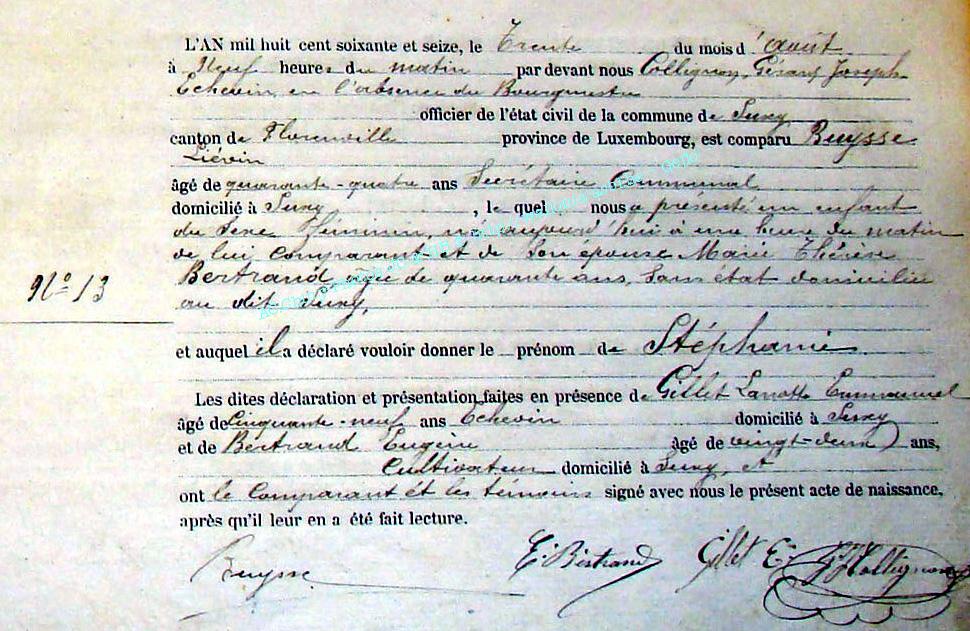 L'AN mil huit cent soixante et seize, le Trente du mois d'août
à Neuf heures du matin par devant nous Collignon, Gérard Joseph
Echevin, en l'absence du Bourgmestre
officier de l'état civil de la commune de Suxy
canton de Florenville province de Luxembourg, est comparu Buysse
Liévin
âgé de quarante-quatre ans Secrétaire Communal
domicilié à Suxy, le quel nous a présenté un enfant
du Sexe féminin, né aujourd'hui à une heure du matin
de lui comparant et de Son épouse Marie Thérèse
Bertrand, agée de quarante ans, Sans état domiciliée
au dit Suxy,
N° 13
et auquel il a déclaré vouloir donner le prénom de Stéphanie
Les dites déclaration et présentation faites en présence de Gillet Emmanuel
âgé de Cinquante-neuf ans Echevin domicilié à Suxy
et de Bertrand Eugène âgé de vingt-deux ans,
Cultivateur domicilié à Suxy, et
ont le Comparant et les témoins signé avec nous le présent acte de naissance,
après qu'il leur en a été fait lecture.
Buysse E. Bertrand Gillet E. GJCollignon